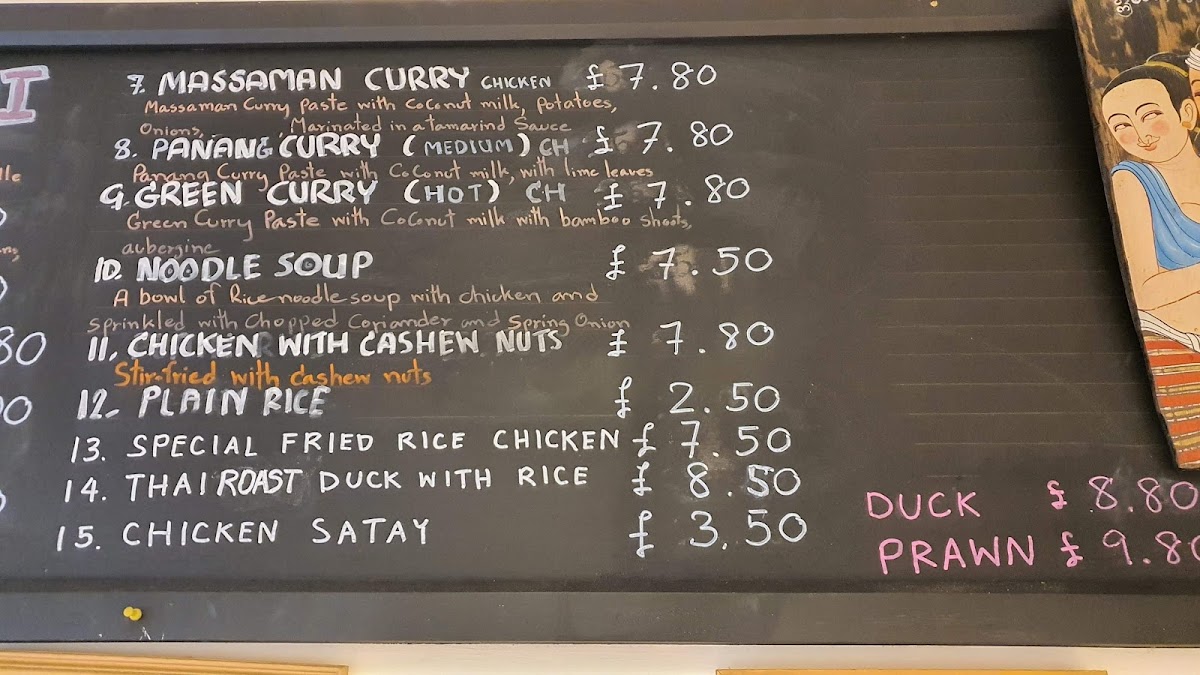 I
7. MASSAMAN CURRY CHICKEN £ 7.80
Massaman Curry Paste with Coconut milk, Potatoes,
Onions, , Marinated in a tamarind Sauce
8. PANANG CURRY (MEDIUM) CH £ 7.80
Panang Curry Paste with Coconut milk, with lime leaves
9. GREEN CURRY (HOT) CH £ 7.80
Green Curry Paste with Coconut milk with bamboo shoots,
aubergine
10. NOODLE SOUP £ 7.50
A bowl of Rice noodle soup with chicken and
sprinkled with Chopped Coriander and Spring Onion
80 11. CHICKEN WITH CASHEW NUTS £ 7.80
Stir-fried with Cashew nuts
12. PLAIN RICE £ 2.50
13. SPECIAL FRIED RICE CHICKEN £ 7.50
14. THAI ROAST DUCK WITH RICE £ 8.50
15. CHICKEN SATAY £ 3.50
DUCK £ 8.80
PRAWN £ 9.80